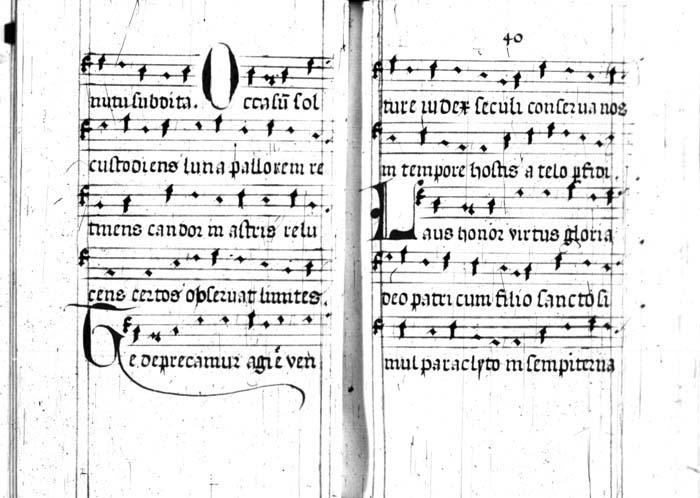 nutu subdita. Occasũ sol
custodiens luna pallorem re
tinens candor in astris relu
cens certos obseruat limites.
Te deprecamur agie ven
40
ture iudex seculi conserua nos
in tempore hostis a telo pfidi.
Laus honor virtus gloria
deo patri cum filio sancto si
mul paraclyto in sempiterna